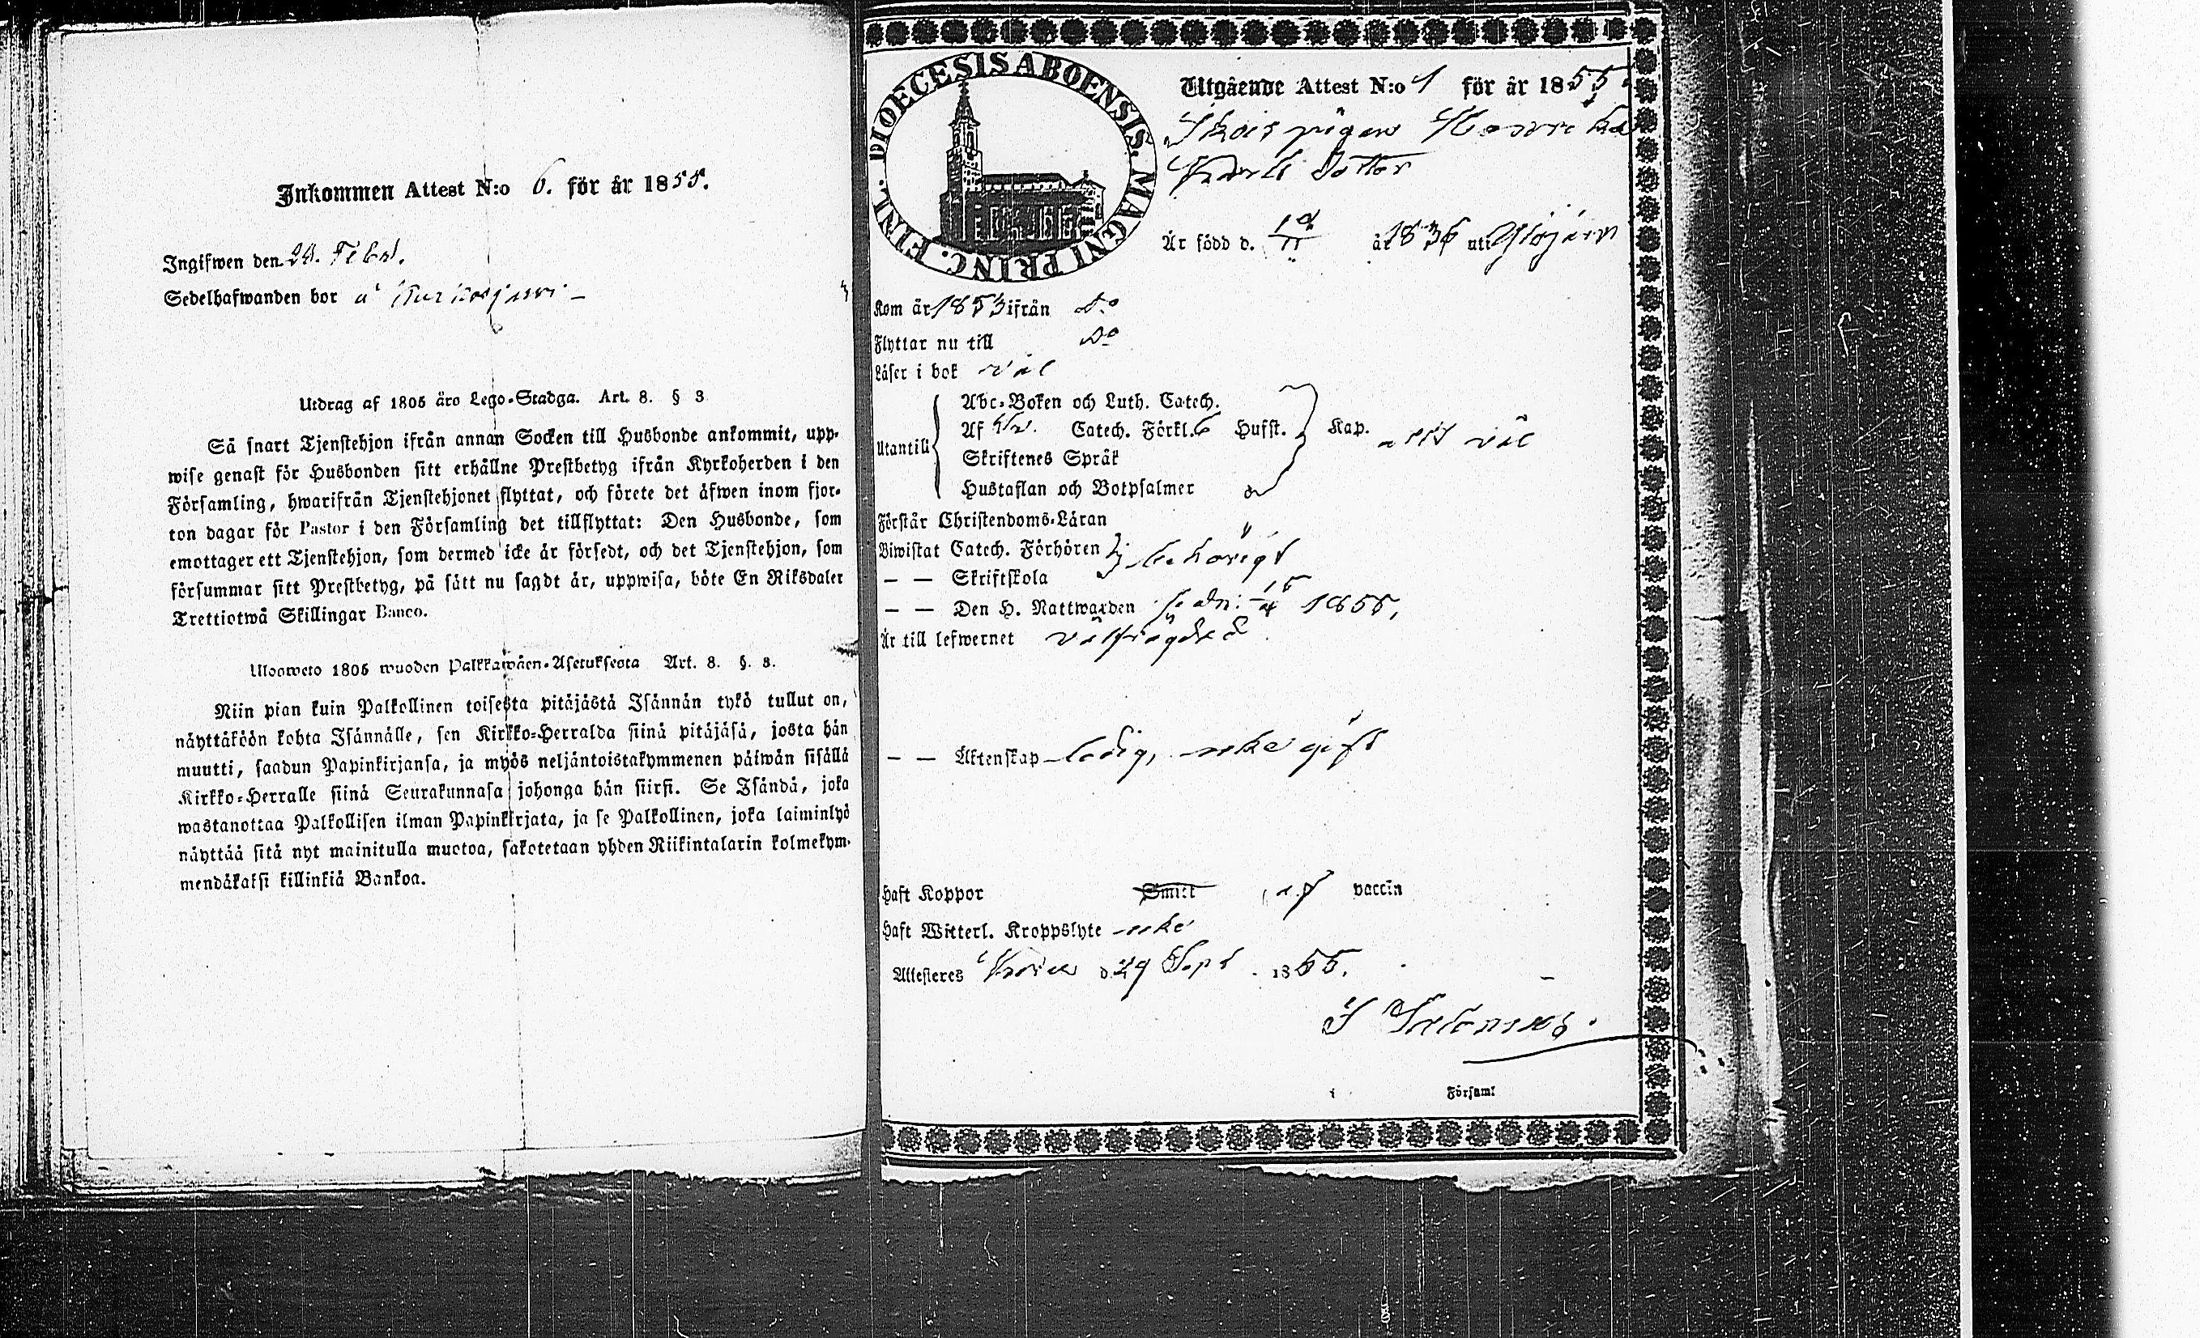 Inkommen Attest N:o 6. för år 1855.
Ingifwen den 24. Febr.
Sedelhafwanden bor å
Utdrag af 1805 års Lego-Stadga. Art. 8. § 3
Så snart Tjenstehjon ifrån annan Socken till Husbonde ankommit, upp-
wise genast för Husbonden sitt erhållne Prestbetyg ifrån Kyrkoherden i den
Församling, hwarifrån Tjenstehjonet flyttat, och förete det äfwen inom fjor-
ton dagar för Pastor i den Församling det tillflyttat: Den Husbonde, som
emottager ett Tjenstehjon, som dermed icke är försedt, och det Tjenstehjon, som
försummar sitt Prestbetyg, på sätt nu sagdt är, uppwisa, böte En Riksdaler
Trettiotwå Skillingar Banco.
Ulosweto 1805 wuoden Palkkawäen-Asetuksesta Art. 8. §. 3.
Niin pian kuin Palkollinen toisesta pitäjästä Isännän tykö tullut on,
näyttäköön kohta Isännälle, sen Kirkko-Herralda siinä pitäjäsä, josta hän
muutti, saadun Papinkirjansa, ja myös neljäntoistakymmenen päiwän sisällä
Kirkko-Herralle siinä Seurakunnasa johonga hän siirsi. Se Isändä, joka
wastanottaa Palkollisen ilman Papinkirjata, ja se Palkollinen, joka laiminlyö
näyttää sitä nyt mainitulla muotoa, sakotetaan yhden Riikintalarin kolmekym-
mendäkaksi killinkiä Bankoa.
DIOECESIS ABOENSIS. MAGNI PRINC. FINL.
Utgående Attest N:o 1 för år 1855.
pigan
Karls Dotter
Är född d. 1/11 år 1836 uti Ylöjärvi
Kom år 1853 ifrån Do
Flyttar nu till Do
Läser i bok väl
Utantill
Abc-Boken och Luth. Catech.
Af Catech. Förkl. 6 Hufst. Kap. allt väl
Skriftenes Språk
Hustaflan och Botpsalmer
Förstår Christendoms-Läran
Biwistat Catech. Förhören behörigt
— — Skriftskola
— — Den H. Nattwarden sedn. 1855,
Är till lefwernet välfrägdad
— — Äktenskap ledig, icke gift
Haft Koppor Smitt af vaccin
Haft Witterl. Kroppslyte icke
Attesteres d. 29 Sept. 1855.
i Församl